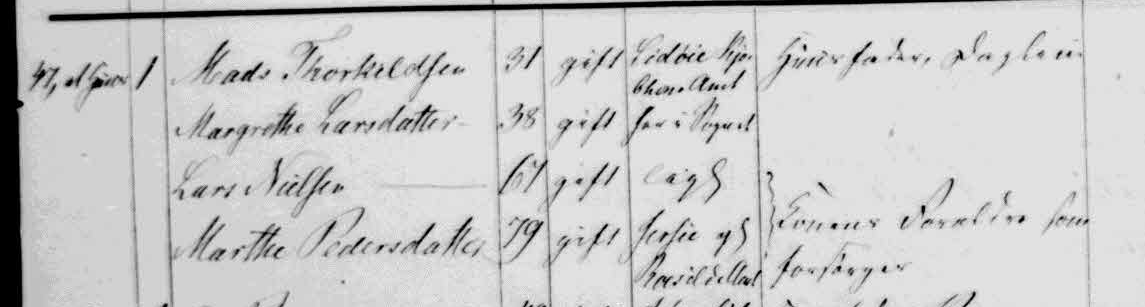 47, et Huus 1 Mads Thorkildsen 31 gift Lidvie Kjø- Huusfader, Daglejer
benh. Amt
Margrethe Larsdatter 38 gift her i Sognet
Lars Nielsen 67 gift ligs
Marthe Pedersdatter 79 gift Jersie
Konens Forældre som
Roeskilde Amt forsørges